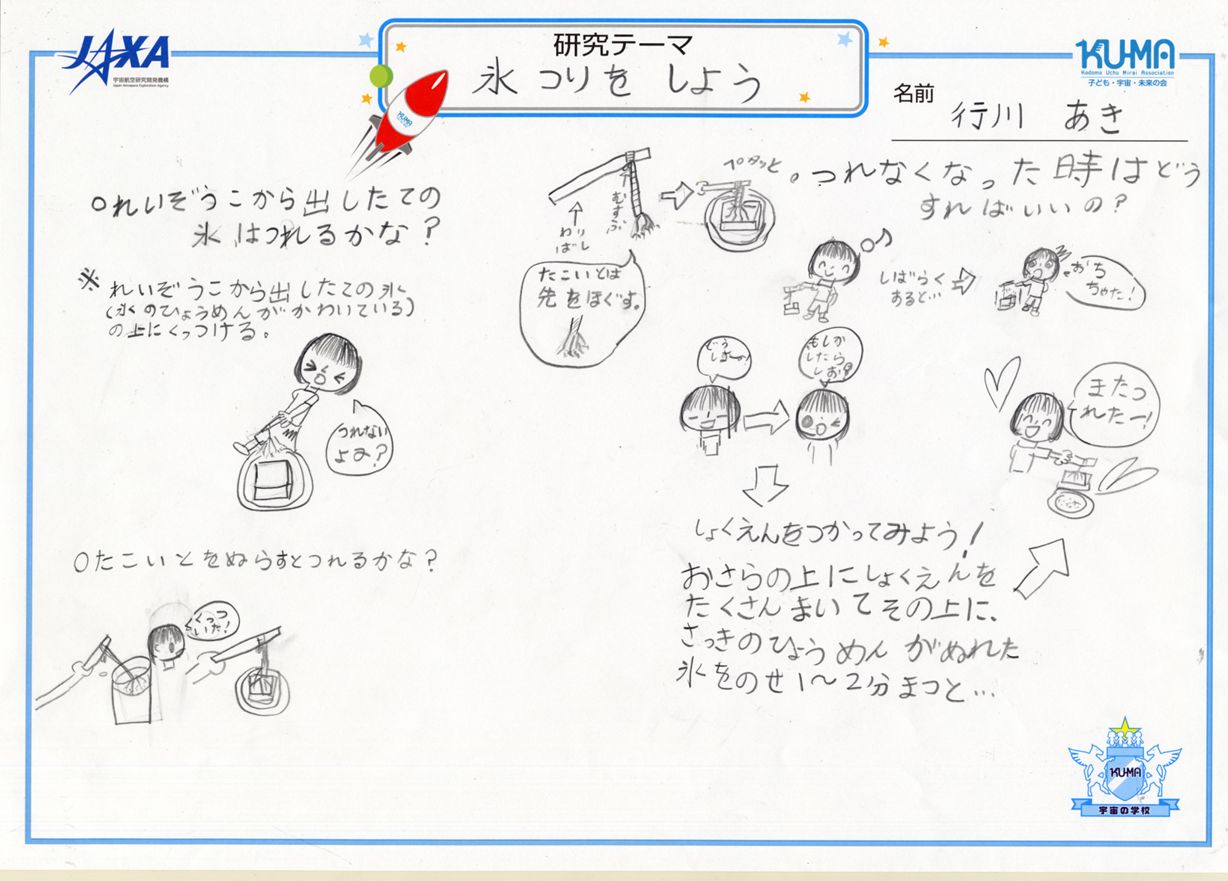 JAXA
宇宙航空研究開発機構
Japan Aerospace Exploration Agency
研究テーマ
氷つりをしよう
KU-MA
Kodomo Uchu Mirai Association
子ども・宇宙・未来の会
名前
行川 あき
○れいぞうこから出したての
氷はつれるかな?
※れいぞうこから出したての氷
(氷のひょうめんがかわいている)
の上にくっつける。
つれない
よね?
○たこいとをぬらすとつれるかな?
くっつ
いた!
わり
ばし
むすぶ
ペタッと
たこいとは
先をほぐす。
。つれなくなった時はどう
すればいいの?
しばらく
すると…
おち
ちゃた!
どう
しよー
もしか
したら
しお?
またつ
れたー!
しょくえんをつかってみよう!
おさらの上にしょくえんを
たくさんまいてその上に、
さっきのひょうめんがぬれた
氷をのせ1~2分まつと…
KU-MA
宇宙の学校